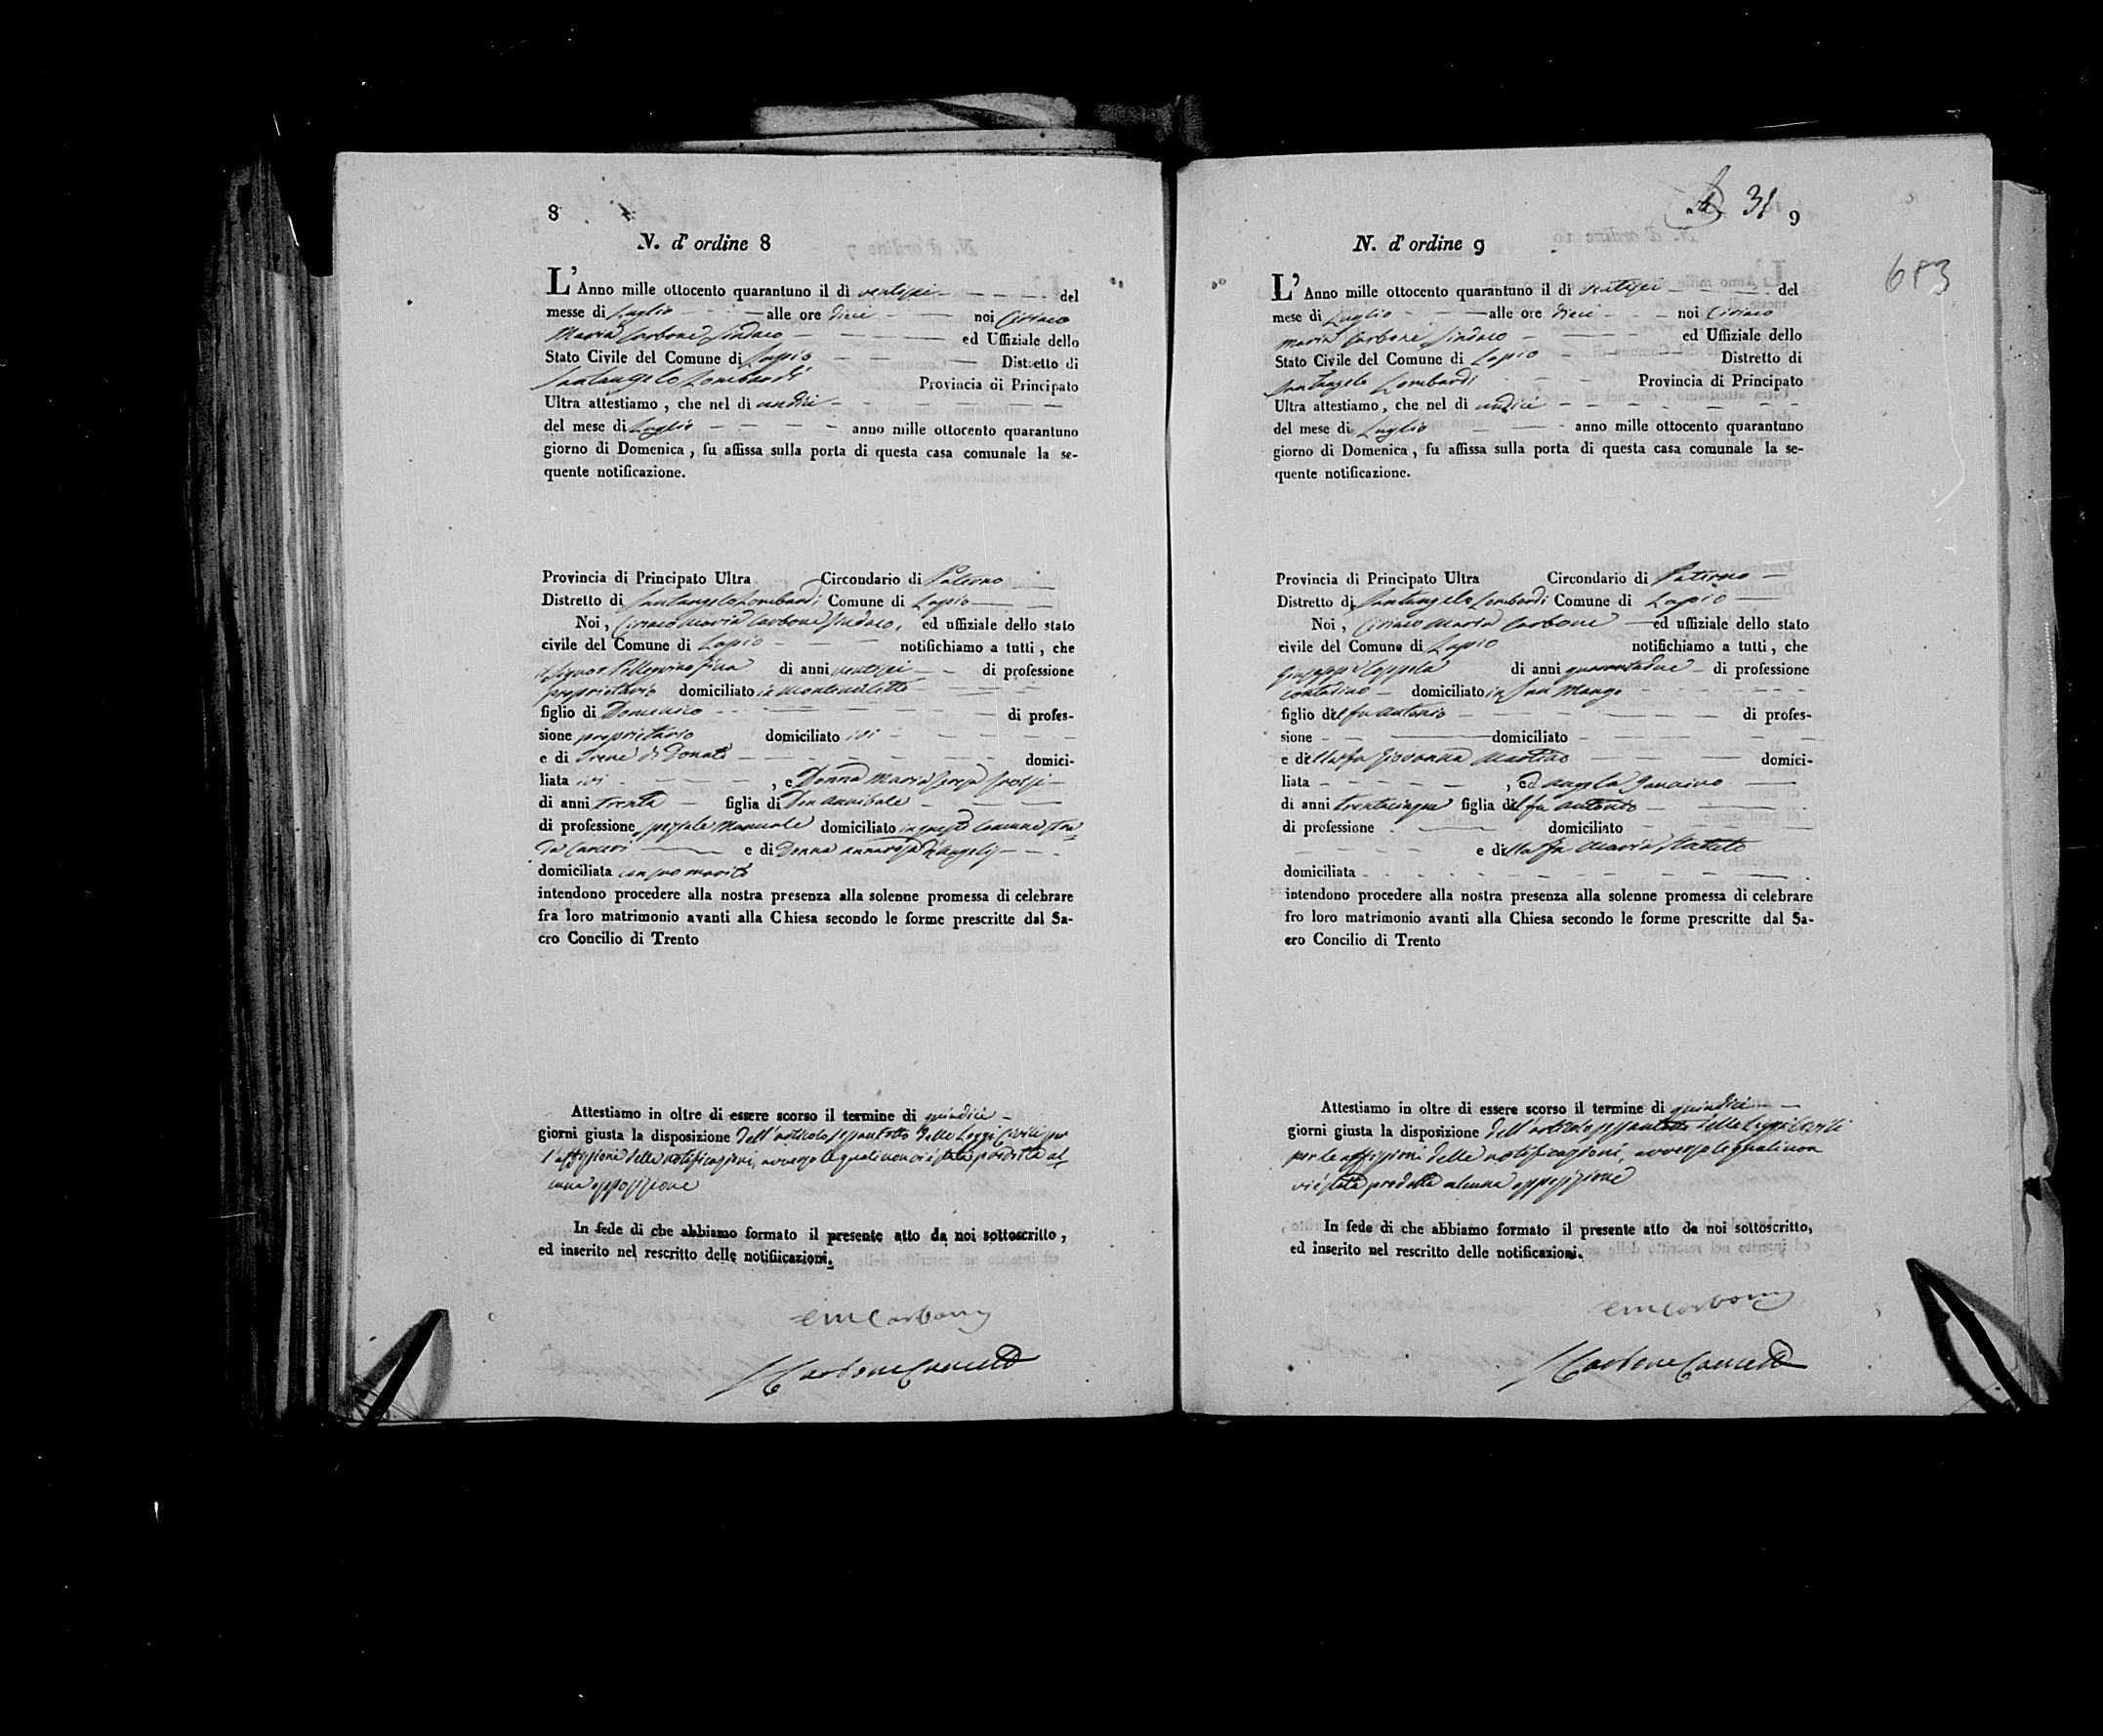 8
N. d' ordine 8
L' Anno mille ottocento quarantuno il dì ventisei del
messe di Luglio alle ore dieci noi Ciriaco
Maria Carbone Sindaco ed Uffiziale dello
Stato Civile del Comune di Lapio Distretto di
Santangelo Lombardi Provincia di Principato
Ultra attestiamo, che nel dì undici
del mese di Luglio anno mille ottocento quarantuno
giorno di Domenica, fu affissa sulla porta di questa casa comunale la se-
quente notificazione.
Provincia di Principato Ultra Circondario di Paterno
Distretto di Santangelo Lombardi Comune di Lapio
Noi, Ciriaco Maria Carbone Sindaco, ed uffiziale dello stato
civile del Comune di Lapio notifichiamo a tutti, che
Signor Pellegrino di anni ventisei di professione
proprietario domiciliato in Montemiletto
figlio di Domenico di profes-
sione proprietario domiciliato ivi
e di Irene di Donato domici-
liata ivi, e Donna Maria
di anni trenta figlia di Don Annibale
di professione domiciliato in questo Comune stra-
da Carceri e di Donna Annarosa d'Angelis
domiciliata con suo marito
intendono procedere alla nostra presenza alla solenne promessa di celebrare
fra loro matrimonio avanti alla Chiesa secondo le forme prescritte dal Sa-
cro Concilio di Trento
Attestiamo in oltre di essere scorso il termine di quindici
giorni giusta la disposizione dell'articolo sessantotto delle Leggi Civili per
l'affissione delle notificazioni, avverso le quali non vi è stata prodotta al-
cuna opposizione
In fede di che abbiamo formato il presente atto da noi sottoscritto,
ed inserito nel rescritto delle notifiicazioni.
CM Carbone
Carbone Cancell
31 9
683
N. d' ordine 9
L' Anno mille ottocento quarantuno il dì ventisei del
mese di Luglio alle ore dieci noi Ciriaco
Maria Carbone Sindaco ed Uffiziale dello
Stato Civile del Comune di Lapio Distretto di
Santangelo Lombardi Provincia di Principato
Ultra attestiamo, che nel dì undici
del mese di Luglio anno mille ottocento quarantuno
giorno di Domenica, fu affissa sulla porta di questa casa comunale la se-
quente notificazione.
Provincia di Principato Ultra Circondario di Paterno
Distretto di Santangelo Lombardi Comune di Lapio
Noi, Ciriaco Maria Carbone ed uffiziale dello stato
civile del Comune di Lapio notifichiamo a tutti, che
Giuseppe Coppola di anni quarantadue di professione
contadino domiciliato in San Mango
figlio del fu Antonio di profes-
sione domiciliato
e della fu Giovanna Martino domici-
liata, ed Angela
di anni trentacinque figlia del fu Antonio
di professione domiciliato
e della fu Maria
domiciliata
intendono procedere alla nostra presenza alla solenne promessa di celebrare
fro loro matrimonio avanti alla Chiesa secondo le forme prescritte dal Sa-
cro Concilio di Trento
Attestiamo in oltre di essere scorso il termine di quindici
giorni giusta la disposizione dell'articolo sessantotto delle Leggi Civili
per le affissioni delle notificazioni, avverso le quali non
vi è stata prodotta alcuna opposizione
In fede di che abbiamo formato il presente atto da noi sottoscritto,
ed inserito nel rescritto delle notificazioni.
CM Carbone
Carbone Cancell